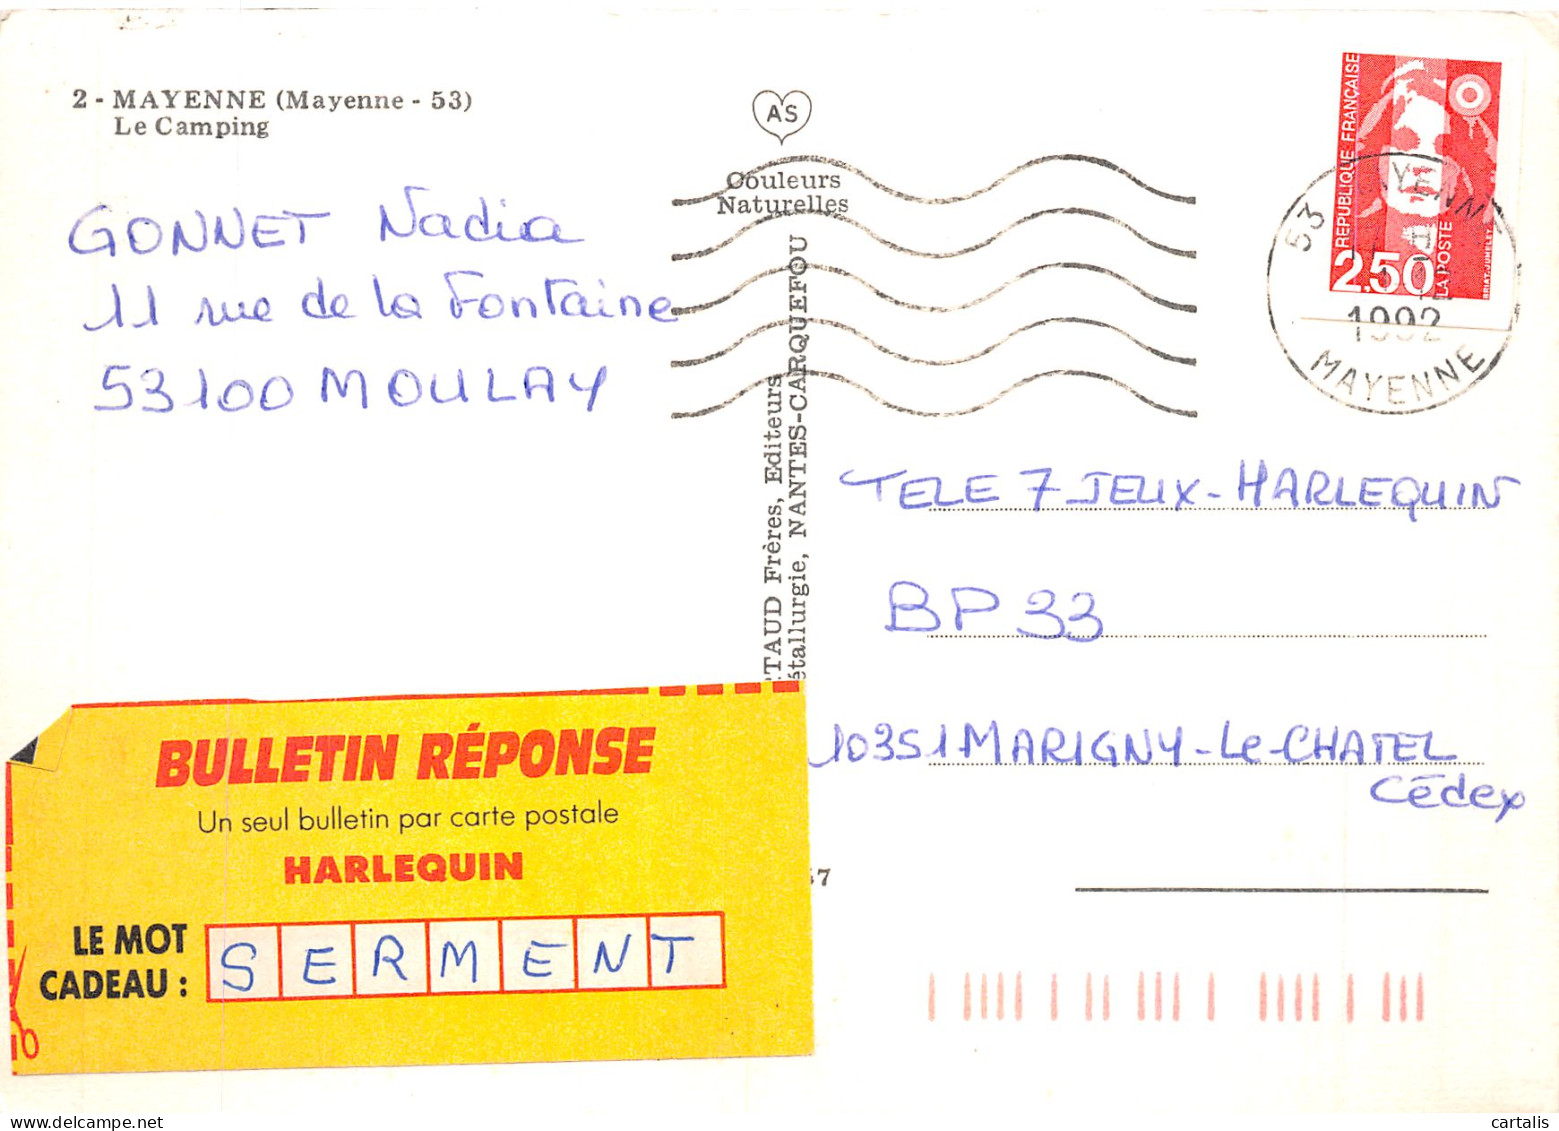 2 - MAYENNE (Mayenne - 53)
Le Camping
AS
Couleurs
Naturelles
GONNET Nadia
11 rue de la Fontaine
53100 MOULAY
TAUD Frères, Editeurs
étallurgie, NANTES-CARQUEFOU
REPUBLIQUE FRANÇAISE
2,50
LA POSTE
BRIAT-JUMELET
53 MAYENNE
1992
MAYENNE
TELE 7 JEUX-HARLEQUIN
BP 33
10351 MARIGNY-Le-CHATEL
Cédex
BULLETIN RÉPONSE
Un seul bulletin par carte postale
HARLEQUIN
LE MOT
CADEAU :
SERMENT
47
cartalis